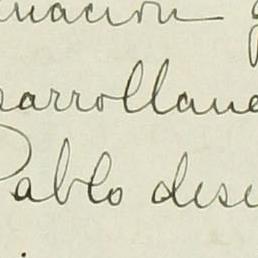 uación
sarrollan
Pablo dese